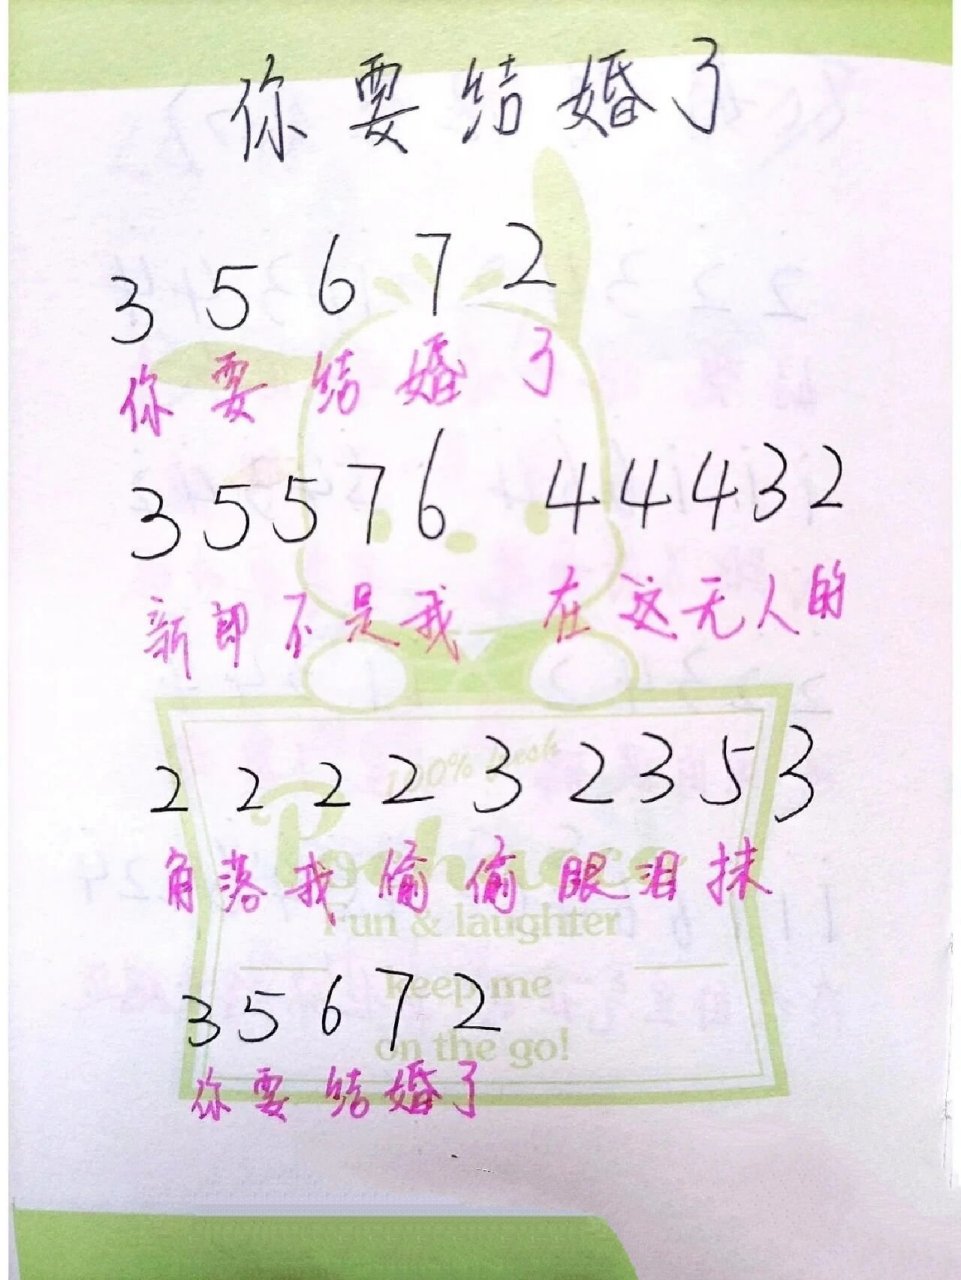 你要结婚了
3 5 6 7 2
你要结婚了
3 5 5 7 6 4 4 4 3 2
新郎不是我 在这无人的
2 2 2 2 3 2 3 5 3
角落我偷偷眼泪抹
100% fresh
Pochacco
Fun & laughter
3 5 6 7 2
keep me
on the go!
你要结婚了